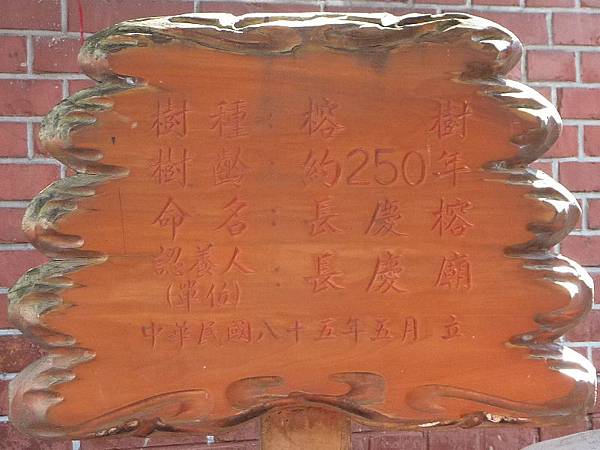 樹種：榕樹
樹齡：約250年
命名：長慶榕
認養人(單位)：長慶廟
中華民國八十五年五月立